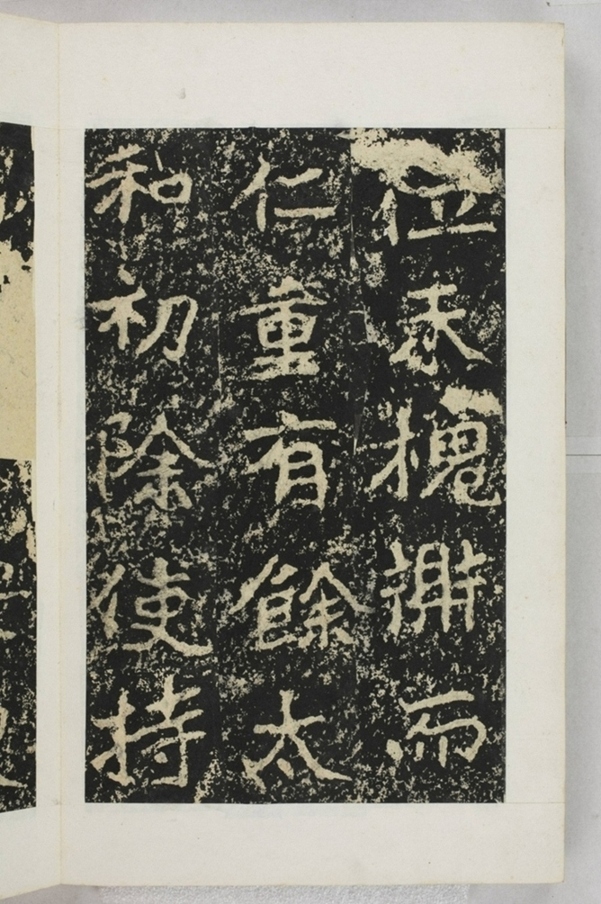 位未槐鼎而
仁重有餘太
和初除使持